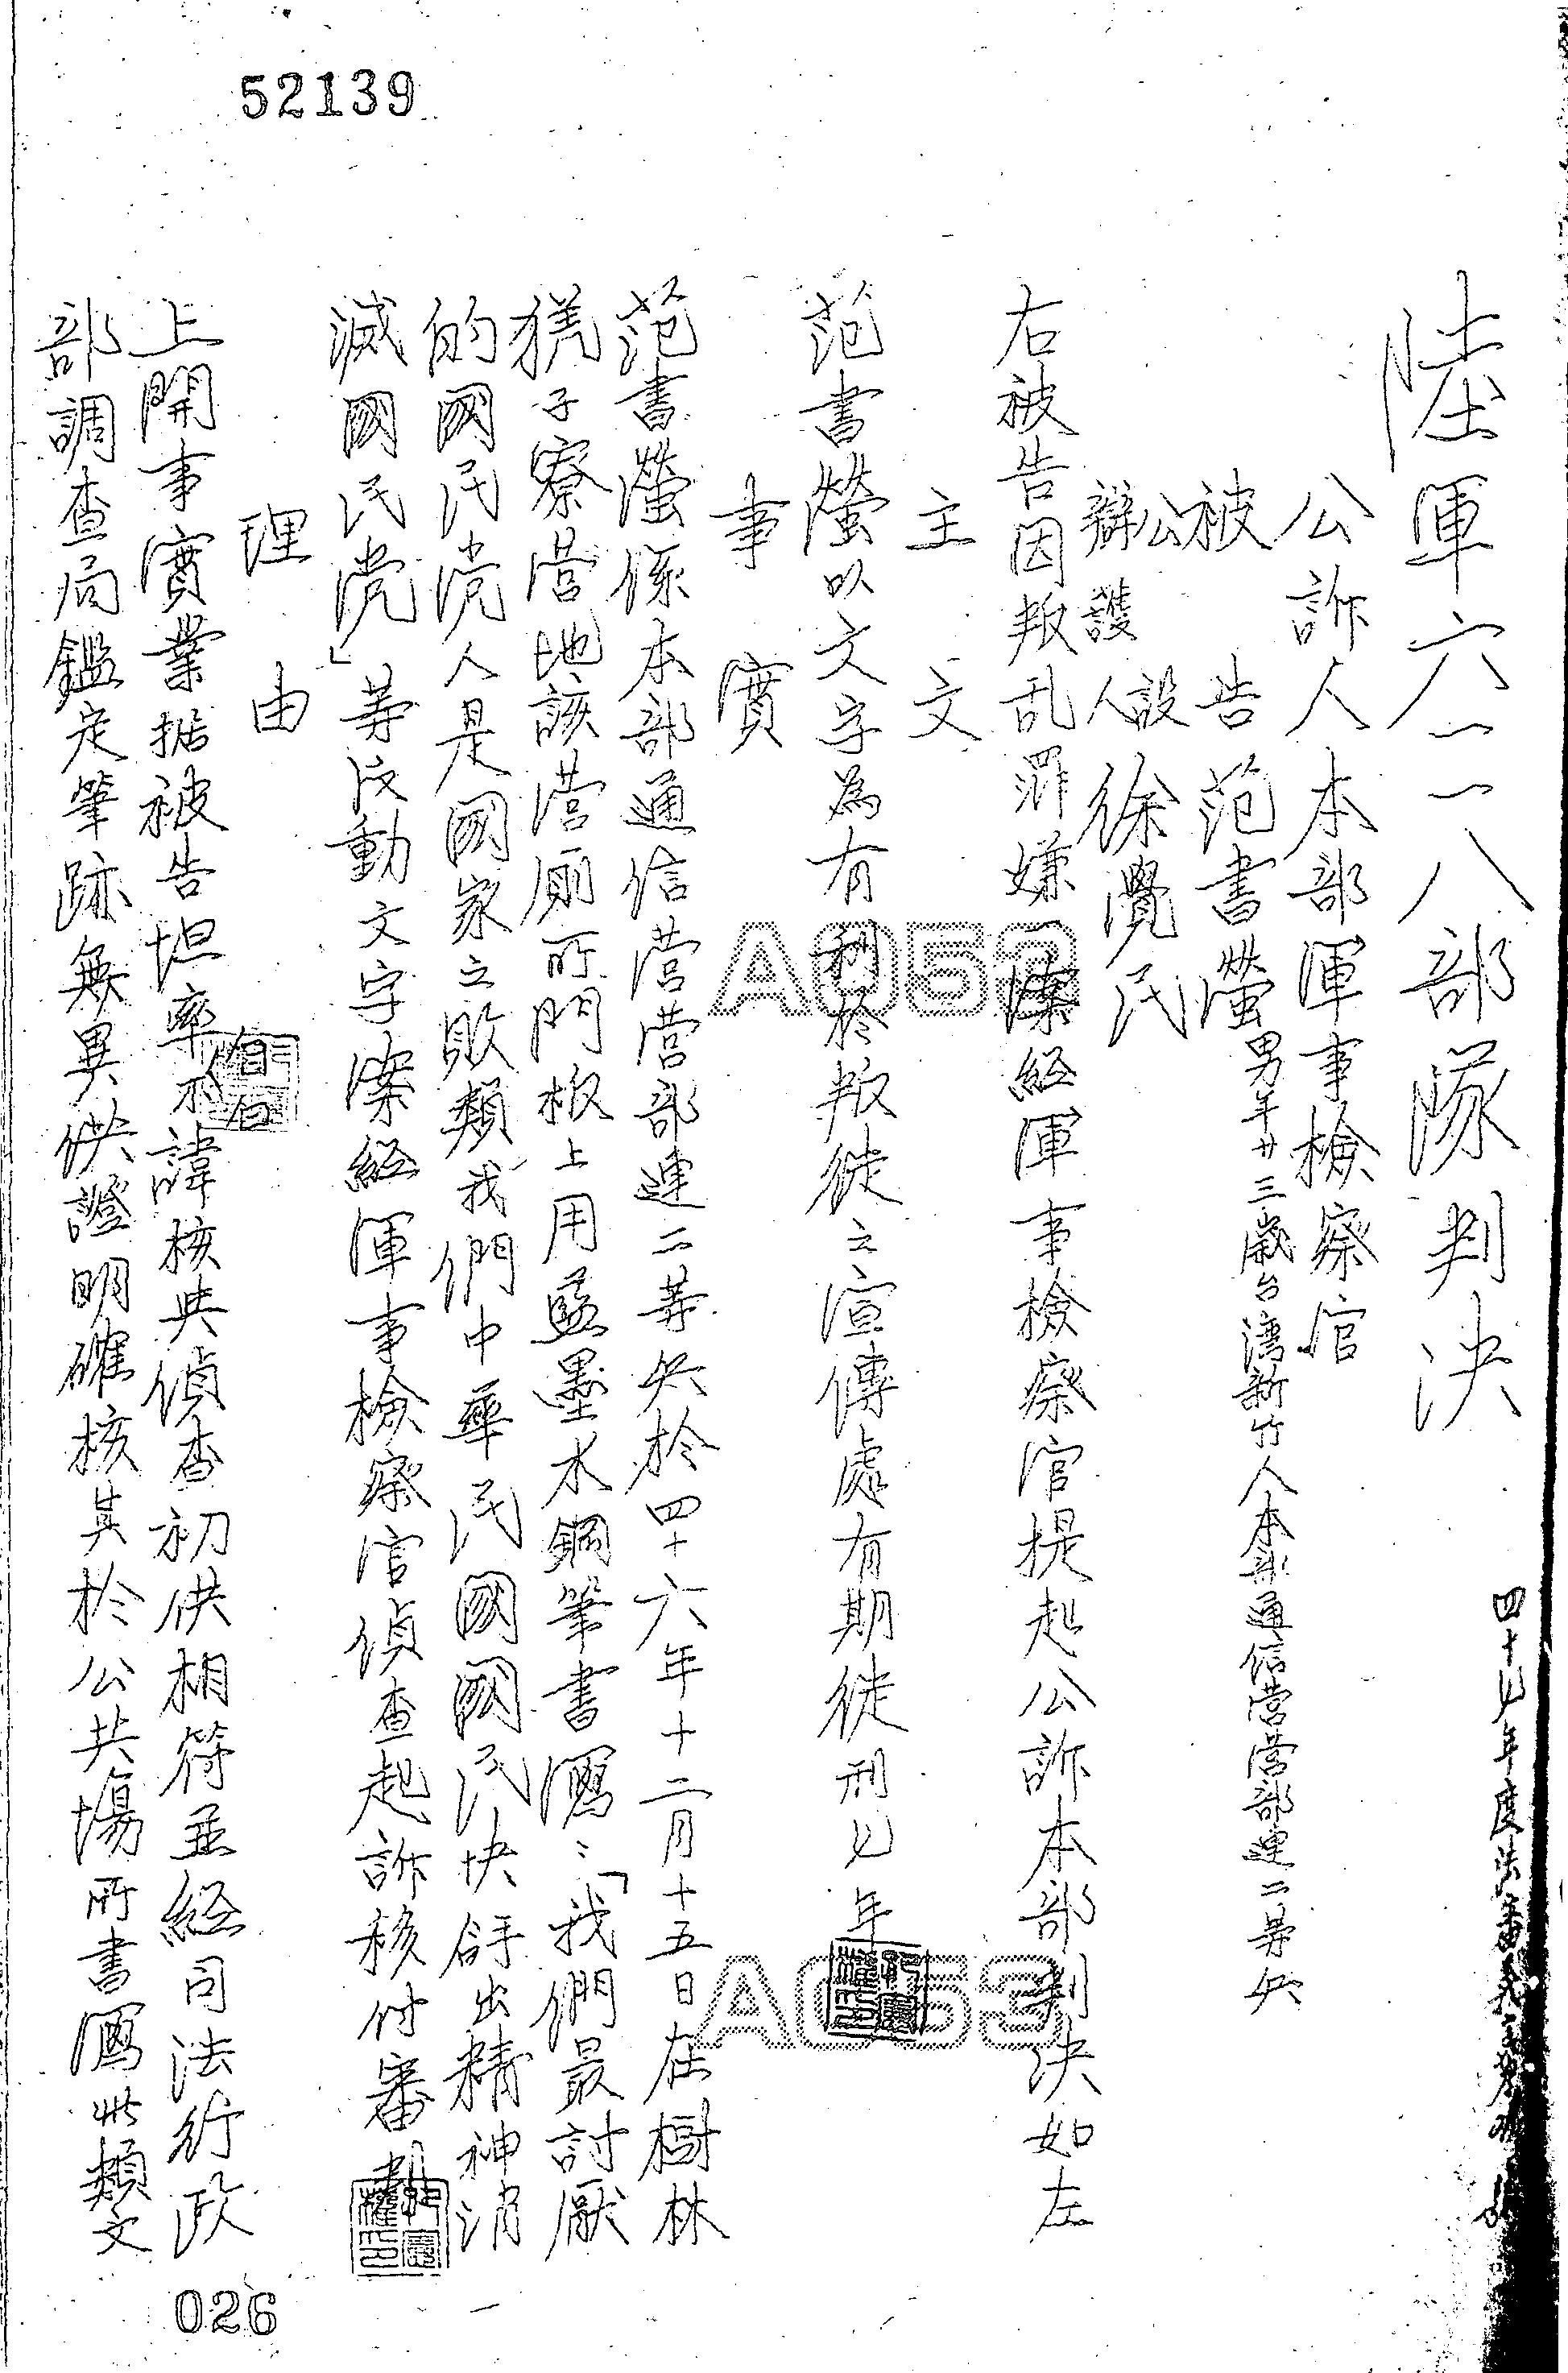 52139
陸軍六二一八部隊判決
四十七年度法審
公訴人本部軍事檢察官
被告范書螢男年廿三歲台灣新竹人本部通信營營部連二等兵
公設辯護人徐覺民
右被告因叛乱罪嫌一案經軍事檢察官提起公訴本部判決如左
主文
范書螢以文字為有利於叛徒之宣傳處有期徒刑七年
事實
范書螢係本部通信營營部連二等兵於四十六年十二月十五日在樹林
猐子寮營地該營廁所門板上用藍墨水鋼筆書寫:「我們最討厭
的國民党人是國家之敗類我們中華民國國民快拿出精神消
滅國民党」等反動文字案經軍事檢察官偵查起訴移付審判
理由
上開事實業据被告坦率不諱核與偵查初供相符並經司法行政
部調查局鑑定筆跡無異供證明確核其於公共場所書寫此類文
A053
A053
026